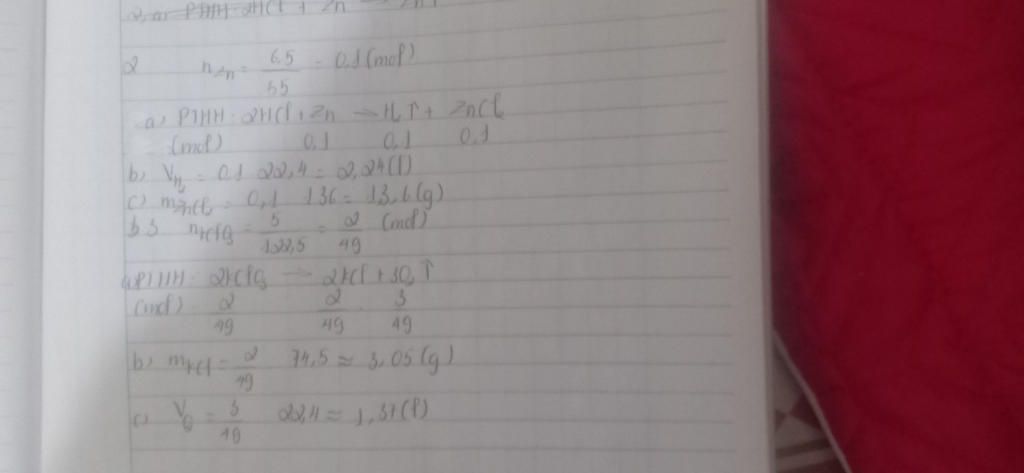 2, a, PTHH: 2HCl + Zn
2 nZn = 6,5/65 = 0,1 (mol)
a, PTHH: 2HCl + Zn → H2↑ + ZnCl2
(mol) 0,1 0,1 0,1
b, VH2 = 0,1 22,4 = 2,24(l)
c) mZnCl2 = 0,1 136 = 13,6(g)
b 3 nKClO3 = 5/122,5 = 2/49 (mol)
a, PTHH: 2KClO3 → 2KCl + 3O2↑
(mol) 2/49 2/49 3/49
b, mKCl = 2/49 74,5 ≈ 3,05(g)
c) VO2 = 3/49 22,4 ≈ 1,37(l)